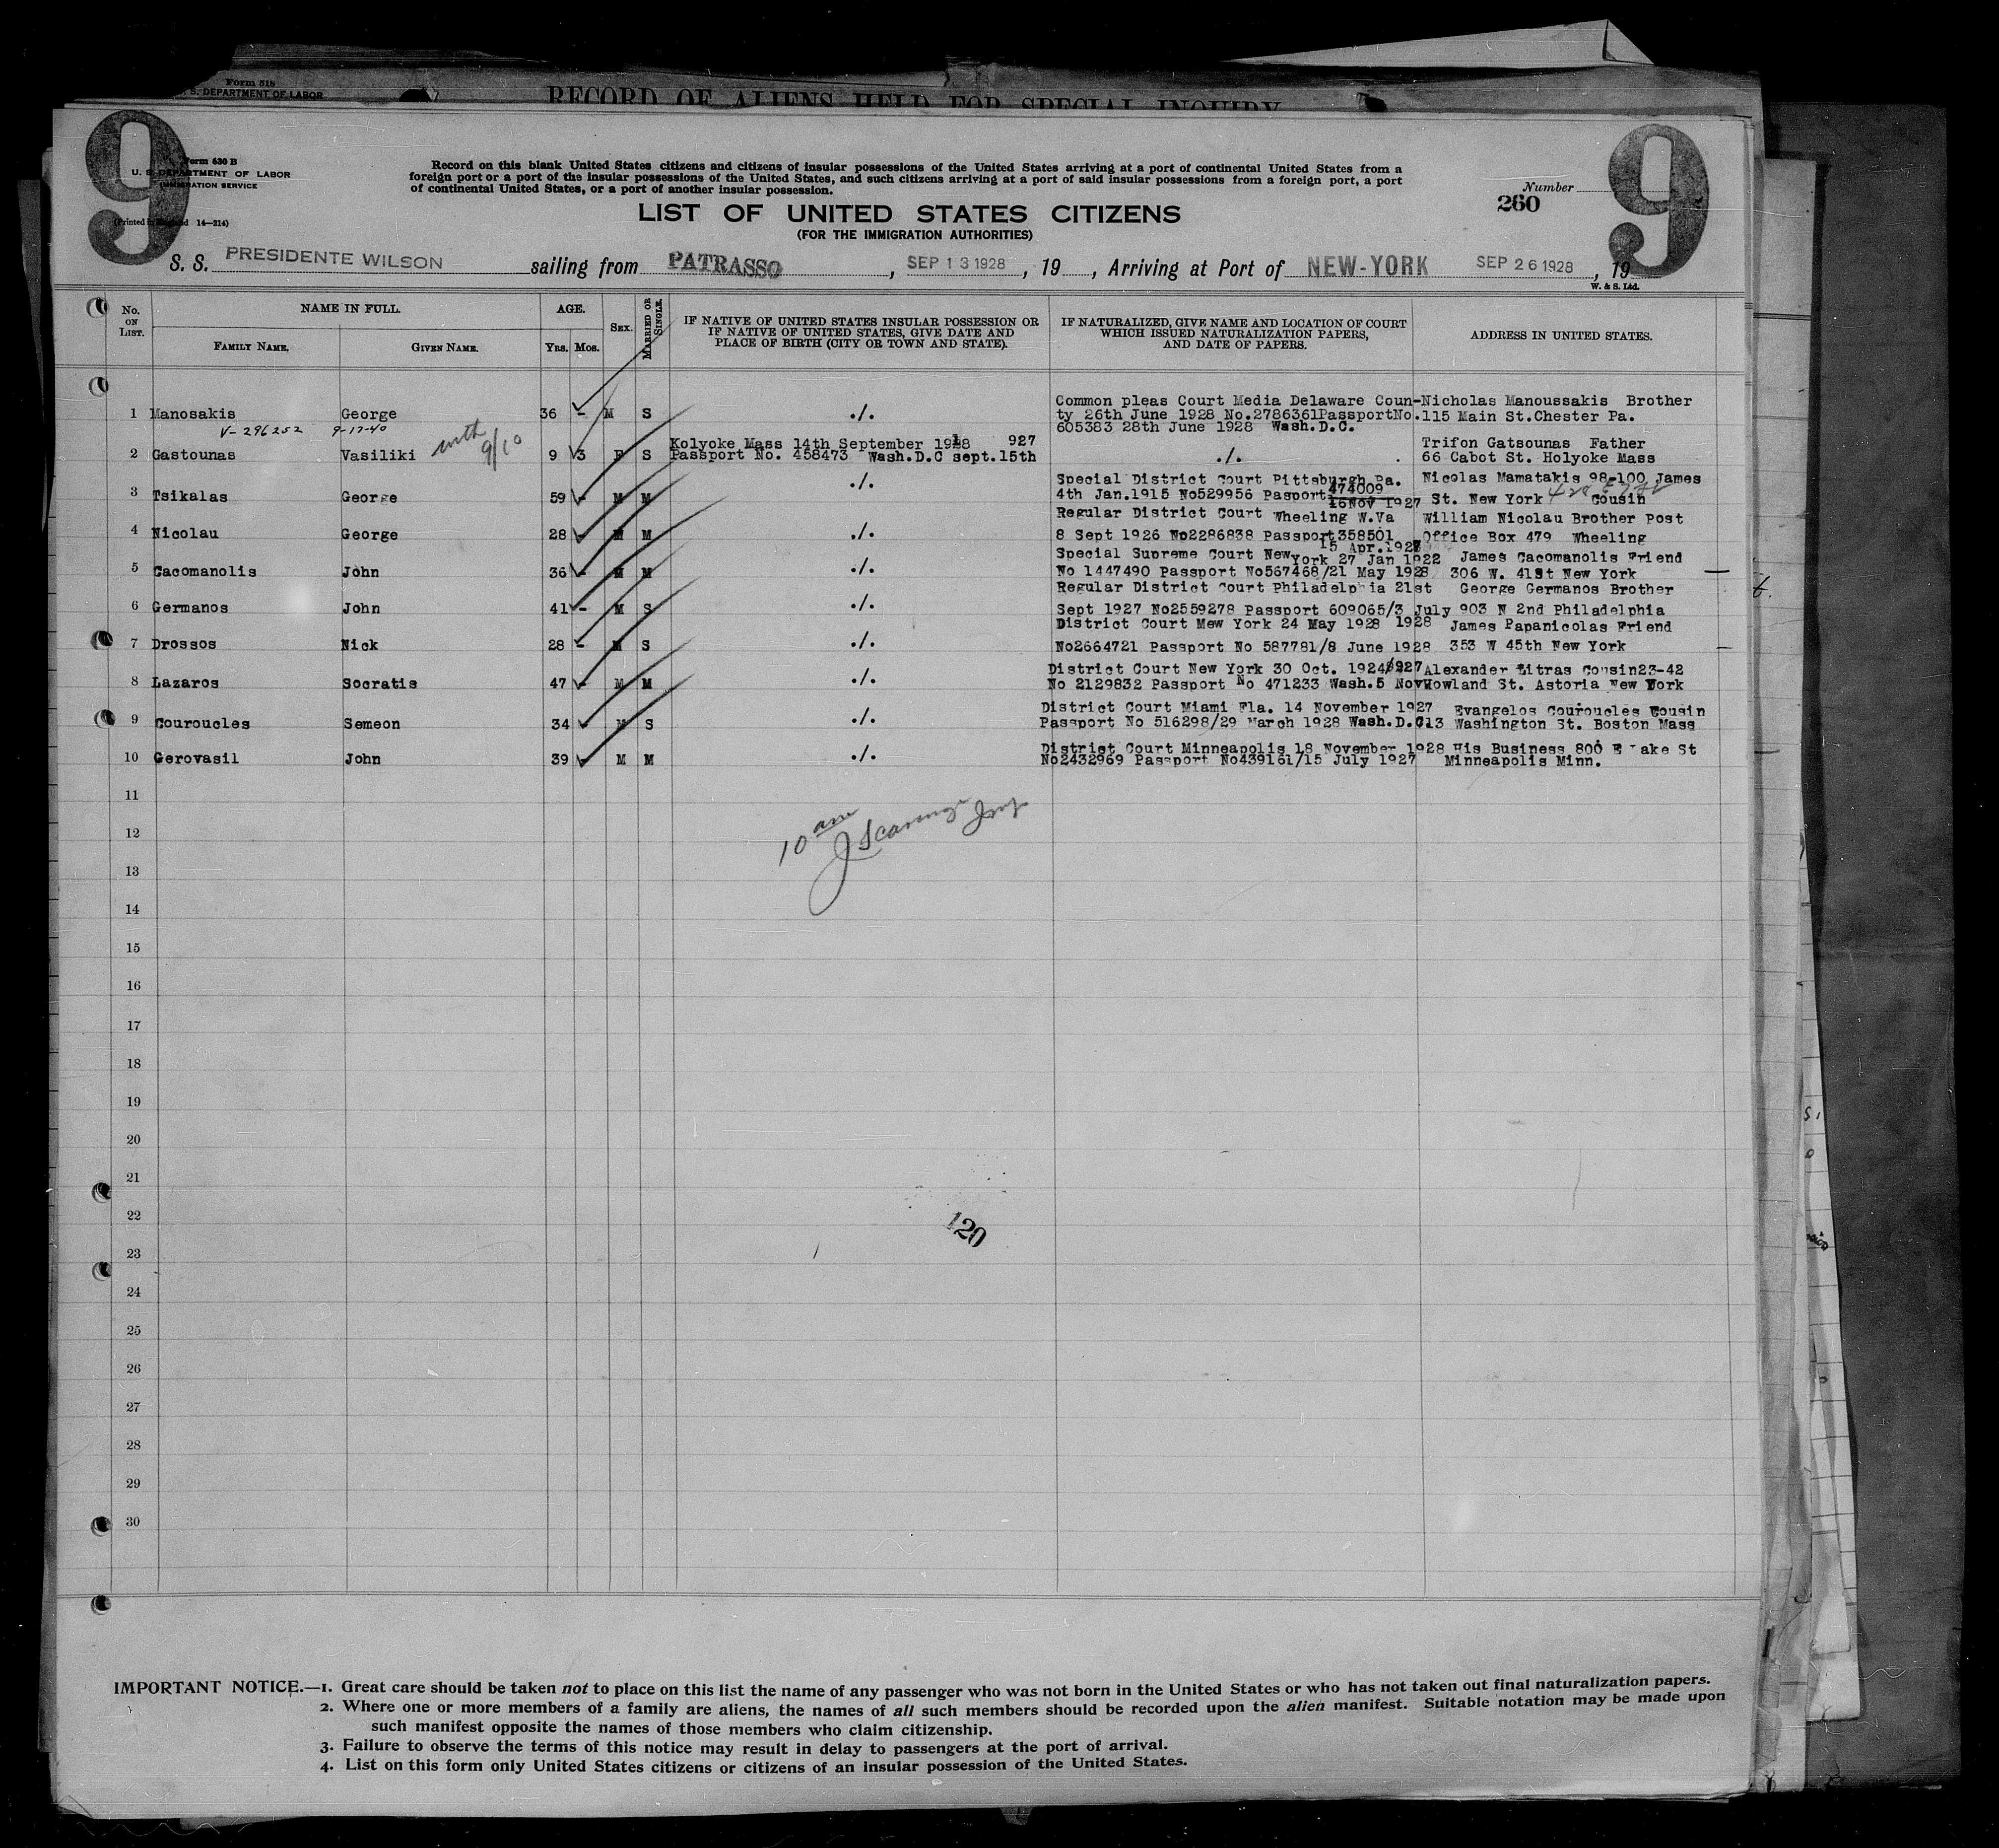 Form 518
S. DEPARTMENT OF LABOR
RECORD OF ALIENS HELD FOR SPECIAL INQUIRY
9
9
Form 630 B
U. S. DEPARTMENT OF LABOR
IMMIGRATION SERVICE
(Printed in England 14—214)
Record on this blank United States citizens and citizens of insular possessions of the United States arriving at a port of continental United States from a
foreign port or a port of the insular possessions of the United States, and such citizens arriving at a port of said insular possessions from a foreign port, a port
of continental United States, or a port of another insular possession.
LIST OF UNITED STATES CITIZENS
(FOR THE IMMIGRATION AUTHORITIES)
Number
260
S. S. PRESIDENTE WILSON sailing from PATRASSO, SEP 13 1928, 19 , Arriving at Port of NEW-YORK SEP 26 1928, 19
W. & S. Ltd.
No. ON LIST.
NAME IN FULL.
FAMILY NAME. GIVEN NAME.
AGE.
YRS. MOS.
SEX.
MARRIED OR SINGLE.
IF NATIVE OF UNITED STATES INSULAR POSSESSION OR
IF NATIVE OF UNITED STATES, GIVE DATE AND
PLACE OF BIRTH (CITY OR TOWN AND STATE).
IF NATURALIZED, GIVE NAME AND LOCATION OF COURT
WHICH ISSUED NATURALIZATION PAPERS,
AND DATE OF PAPERS.
ADDRESS IN UNITED STATES.
Common pleas Court Media Delaware Coun- Nicholas Manoussakis Brother
1 Manosakis George 36 - M S ./. ty 26th June 1928 No.2786361PassportNo. 115 Main St.Chester Pa.
V-296252 9-17-40 605383 28th June 1928 Wash.D.C.
with 9/10
Kolyoke Mass 14th September 1918 927 Trifon Gatsounas Father
2 Gastounas Vasiliki 9 3 F S Passport No. 458473 Wash.D.C sept.15th ./. 66 Cabot St. Holyoke Mass
Special District Court Pittsburgh Pa. Nicolas Mamatakis 98-100 James
3 Tsikalas George 59 - M M ./. 4th Jan.1915 No529956 Pasport 474009 St. New York Cousin
16Nov 1927
Regular District Court Wheeling W.Va William Nicolau Brother Post
4 Nicolau George 28 - M M ./. 8 Sept 1926 No2286838 Passport358501 Office Box 479 Wheeling
15 Apr.1927
Special Supreme Court New York 27 Jan 1922 James Cacomanolis Friend
5 Cacomanolis John 36 - M M ./. No 1447490 Passport No567468/21 May 1928 306 W. 41St New York
Regular District Court Philadelphia 21st George Germanos Brother
6 Germanos John 41 - M S ./. Sept 1927 No2559278 Passport 609065/3 July 903 N 2nd Philadelphia
1928
District Court Mew York 24 May 1928 James Papanicolas Friend
7 Drossos Nick 28 - M S ./. No2664721 Passport No 587781/8 June 1928 353 W 45th New York
District Court New York 30 Oct. 1924 /927 Alexander Litras Cousin23-42
8 Lazaros Socratis 47 - M M ./. No 2129832 Passport No 471233 Wash.5 Nov Howland St. Astoria New York
District Court Miami Fla. 14 November 1927 Evangelos Couroucles Cousin
9 Couroucles Semeon 34 - M S ./. Passport No 516298/29 March 1928 Wash.D.C. 13 Washington St. Boston Mass
District Court Minneapolis 18 November 1928 His Business 800 E Lake St
10 Gerovasil John 39 - M M ./. No2432969 Passport No439161/15 July 1927 Minneapolis Minn.
11
12
10 am
13
14
15
16
17
18
19
20
21
22
120
23
24
25
26
27
28
29
30
IMPORTANT NOTICE.—1. Great care should be taken not to place on this list the name of any passenger who was not born in the United States or who has not taken out final naturalization papers.
2. Where one or more members of a family are aliens, the names of all such members should be recorded upon the alien manifest. Suitable notation may be made upon
such manifest opposite the names of those members who claim citizenship.
3. Failure to observe the terms of this notice may result in delay to passengers at the port of arrival.
4. List on this form only United States citizens or citizens of an insular possession of the United States.